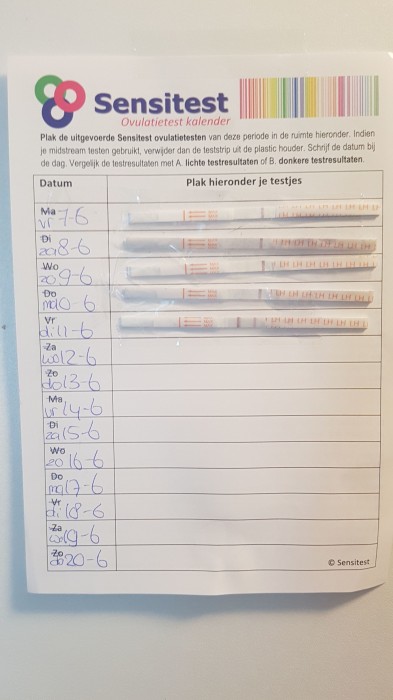 Sensitest
Ovulatietest kalender
Plak de uitgevoerde Sensitest ovulatietesten van deze periode in de ruimte hieronder. Indien
je midstream testen gebruikt, verwijder dan de teststrip uit de plastic houder. Schrijf de datum bij
de dag. Vergelijk de testresultaten met A. lichte testresultaten of B. donkere testresultaten.
Datum Plak hieronder je testjes
Ma
vr 7-6
Di
za 8-6
Wo
zo 9-6
Do
ma 10-6
Vr
di 11-6
Za
wo 12-6
Zo
do 13-6
Ma
vr 14-6
Di
za 15-6
Wo
zo 16-6
Do
ma 17-6
Vr
di 18-6
Za
wo 19-6
Zo
do 20-6
© Sensitest